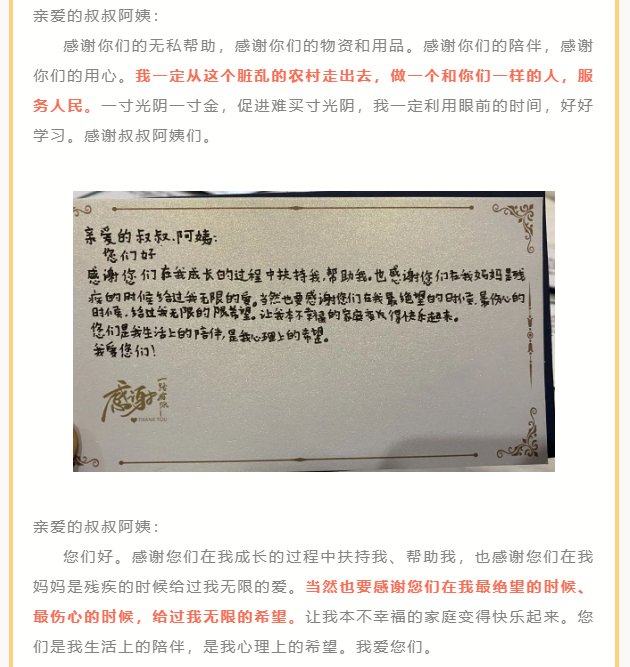 亲爱的叔叔阿姨：
感谢你们的无私帮助，感谢你们的物资和用品。感谢你们的陪伴，感谢
你们的用心。我一定从这个脏乱的农村走出去，做一个和你们一样的人，服
务人民。一寸光阴一寸金，促进难买寸光阴，我一定利用眼前的时间，好好
学习。感谢叔叔阿姨们。
亲爱的叔叔、阿姨：
您们好
感谢您们在我成长的过程中扶持我,帮助我。也感谢您们在我妈妈是残
疾的时候给过我无限的爱。当然也要感谢您们在我最绝望的时候,最伤心的
时候,给过我无限的限希望。让我本不幸福的家庭变得快乐起来。
您们是我生活上的陪伴,是我心理上的希望。
我爱您们!
感谢
一路有你
THANK YOU
亲爱的叔叔阿姨：
您们好。感谢您们在我成长的过程中扶持我、帮助我，也感谢您们在我
妈妈是残疾的时候给过我无限的爱。当然也要感谢您们在我最绝望的时候、
最伤心的时候，给过我无限的希望。让我本不幸福的家庭变得快乐起来。您
们是我生活上的陪伴，是我心理上的希望。我爱您们。